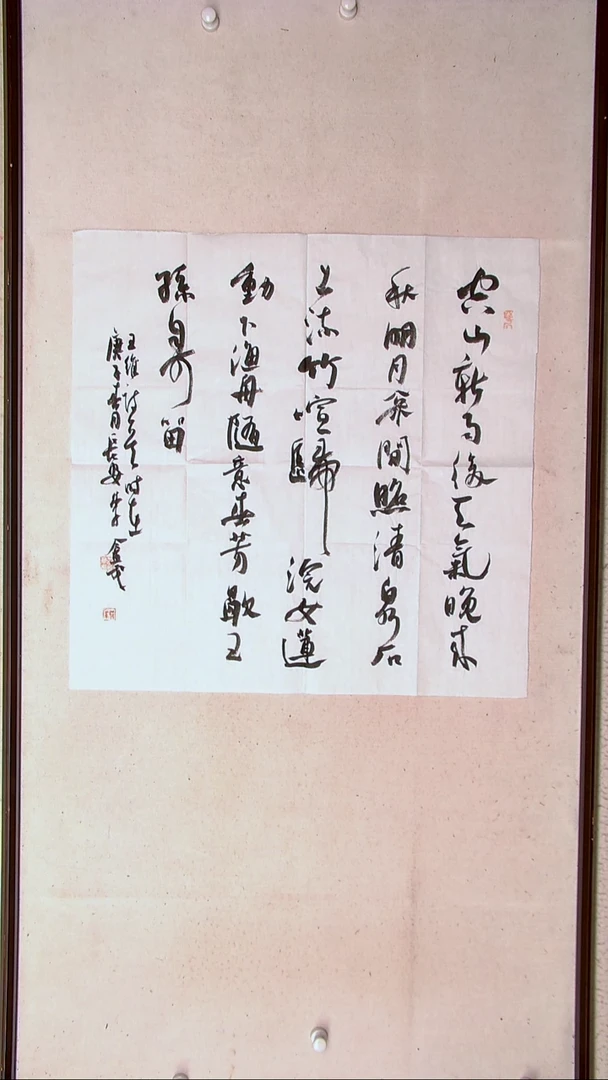 空山新雨後天氣晚來
秋明月松間照清泉石
上流竹喧歸浣女蓮
動下漁舟隨意春芳歇王
孫自可留
王維詩 时在
庚子春月長安